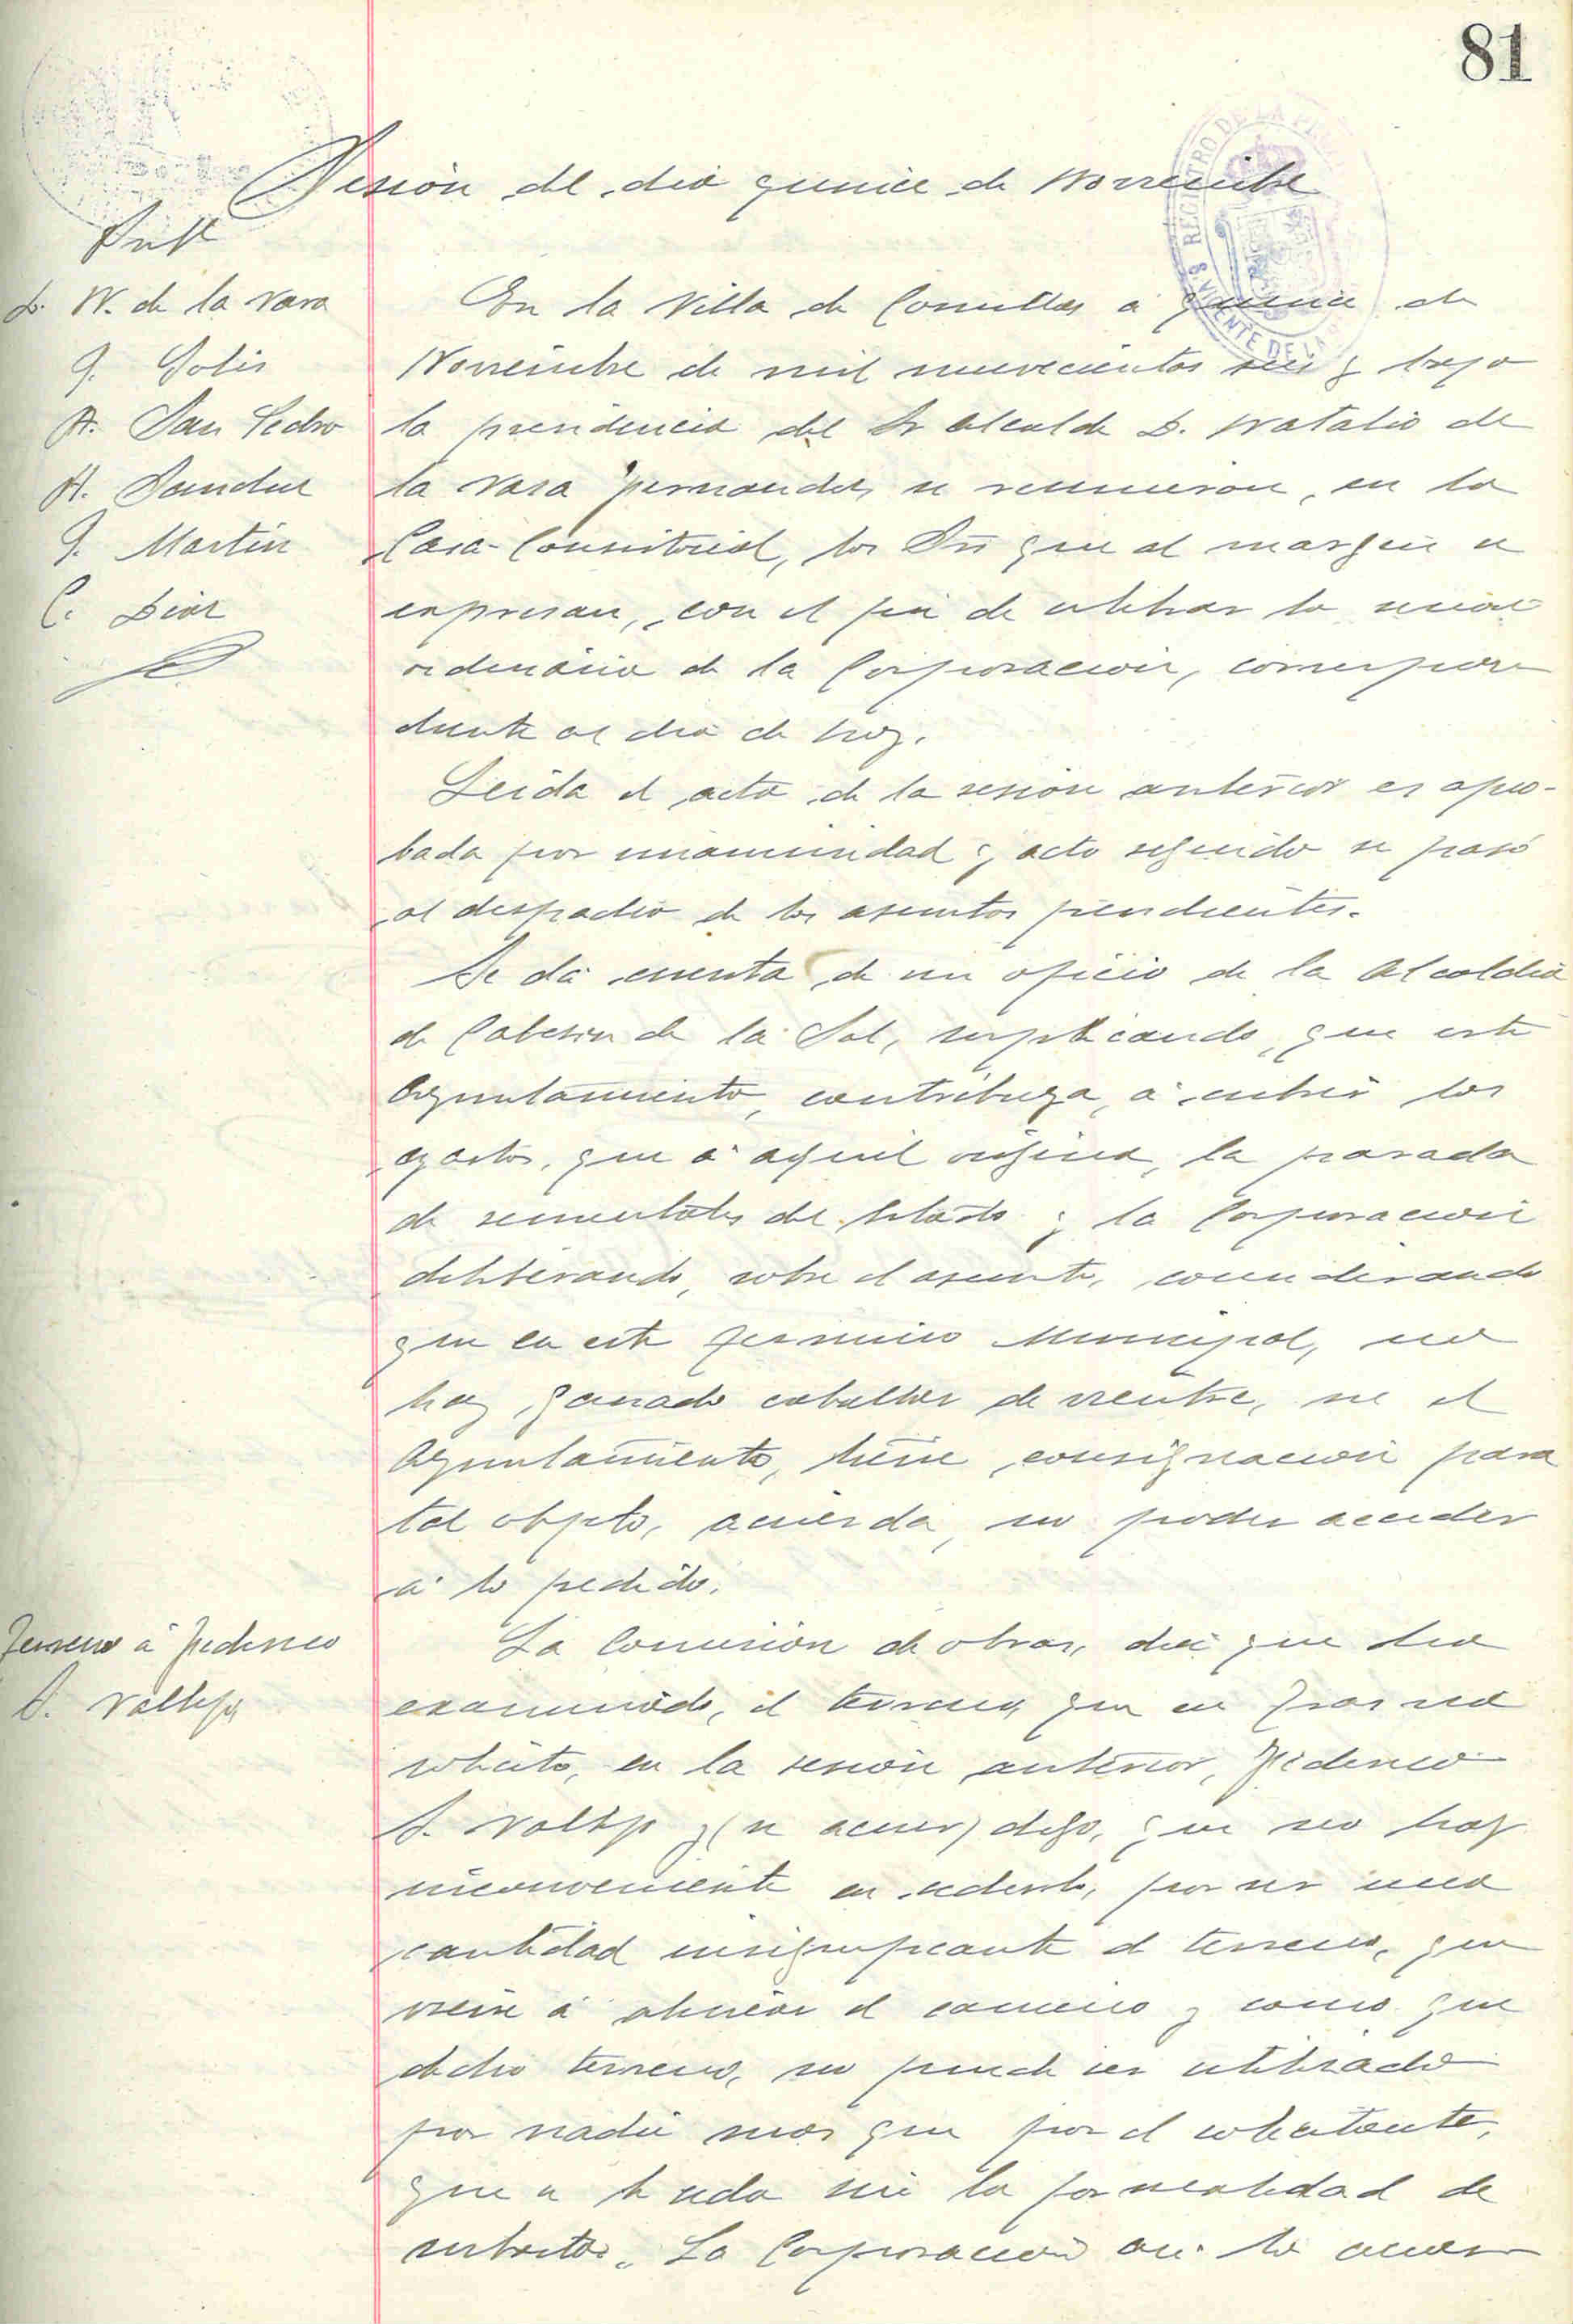 81
Sesión del dia quince de Noviembre
Prest
D. N. de la Vara
G. Solis
A. San Pedro
A. Sanchez
G. Martin
C. Diaz
En la Villa de Comillas á quince de
Noviembre de mil novecientos seis y bajo
la presidencia del Sr Alcalde D. Natalio de
la Vara Fernandez, se reunieron, en la
Casa-Consistorial, los Srs que al margen se
expresan, con el fin de celebrar la sesion
ordinaria de la Corporacion, correspon
diente al dia de hoy.
Leida el acta de la sesion anterior es apro-
bada por unanimidad y acto seguido se pasó
al despacho de los asuntos pendientes.
Se dá cuenta de un oficio de la Alcaldia
de Cabezon de la Sal, suplicando, que este
Ayuntamiento, contribuya, á cubrir los
gastos, que á aquel origina, la parada
de sementales del Estado y la Corporacion
deliberando, sobre el asunto, considerando
que en este termino Municipal, no
hay ganado caballar de vientre, ni el
Ayuntamiento, tiene, consignacion para
tal objeto, acuerda, no poder acceder
á lo pedido.
Terreno á Federico
S. Vallejo
La Comision de obras, dice que ha
examinado, el terreno, que en
solicito, en la sesion anterior, Federico
S. Vallejo y (se acuer) dijo, que no hay
inconveniente en cederlo, por ser una
cantidad insignificante el terreno, que
viene á alinear el camino y como que
dicho terreno, no puede ser utilizado
por nadie mas que por el solicitante,
que se le ceda sin la formalidad de
subasta. La Corporacion asi lo acuer